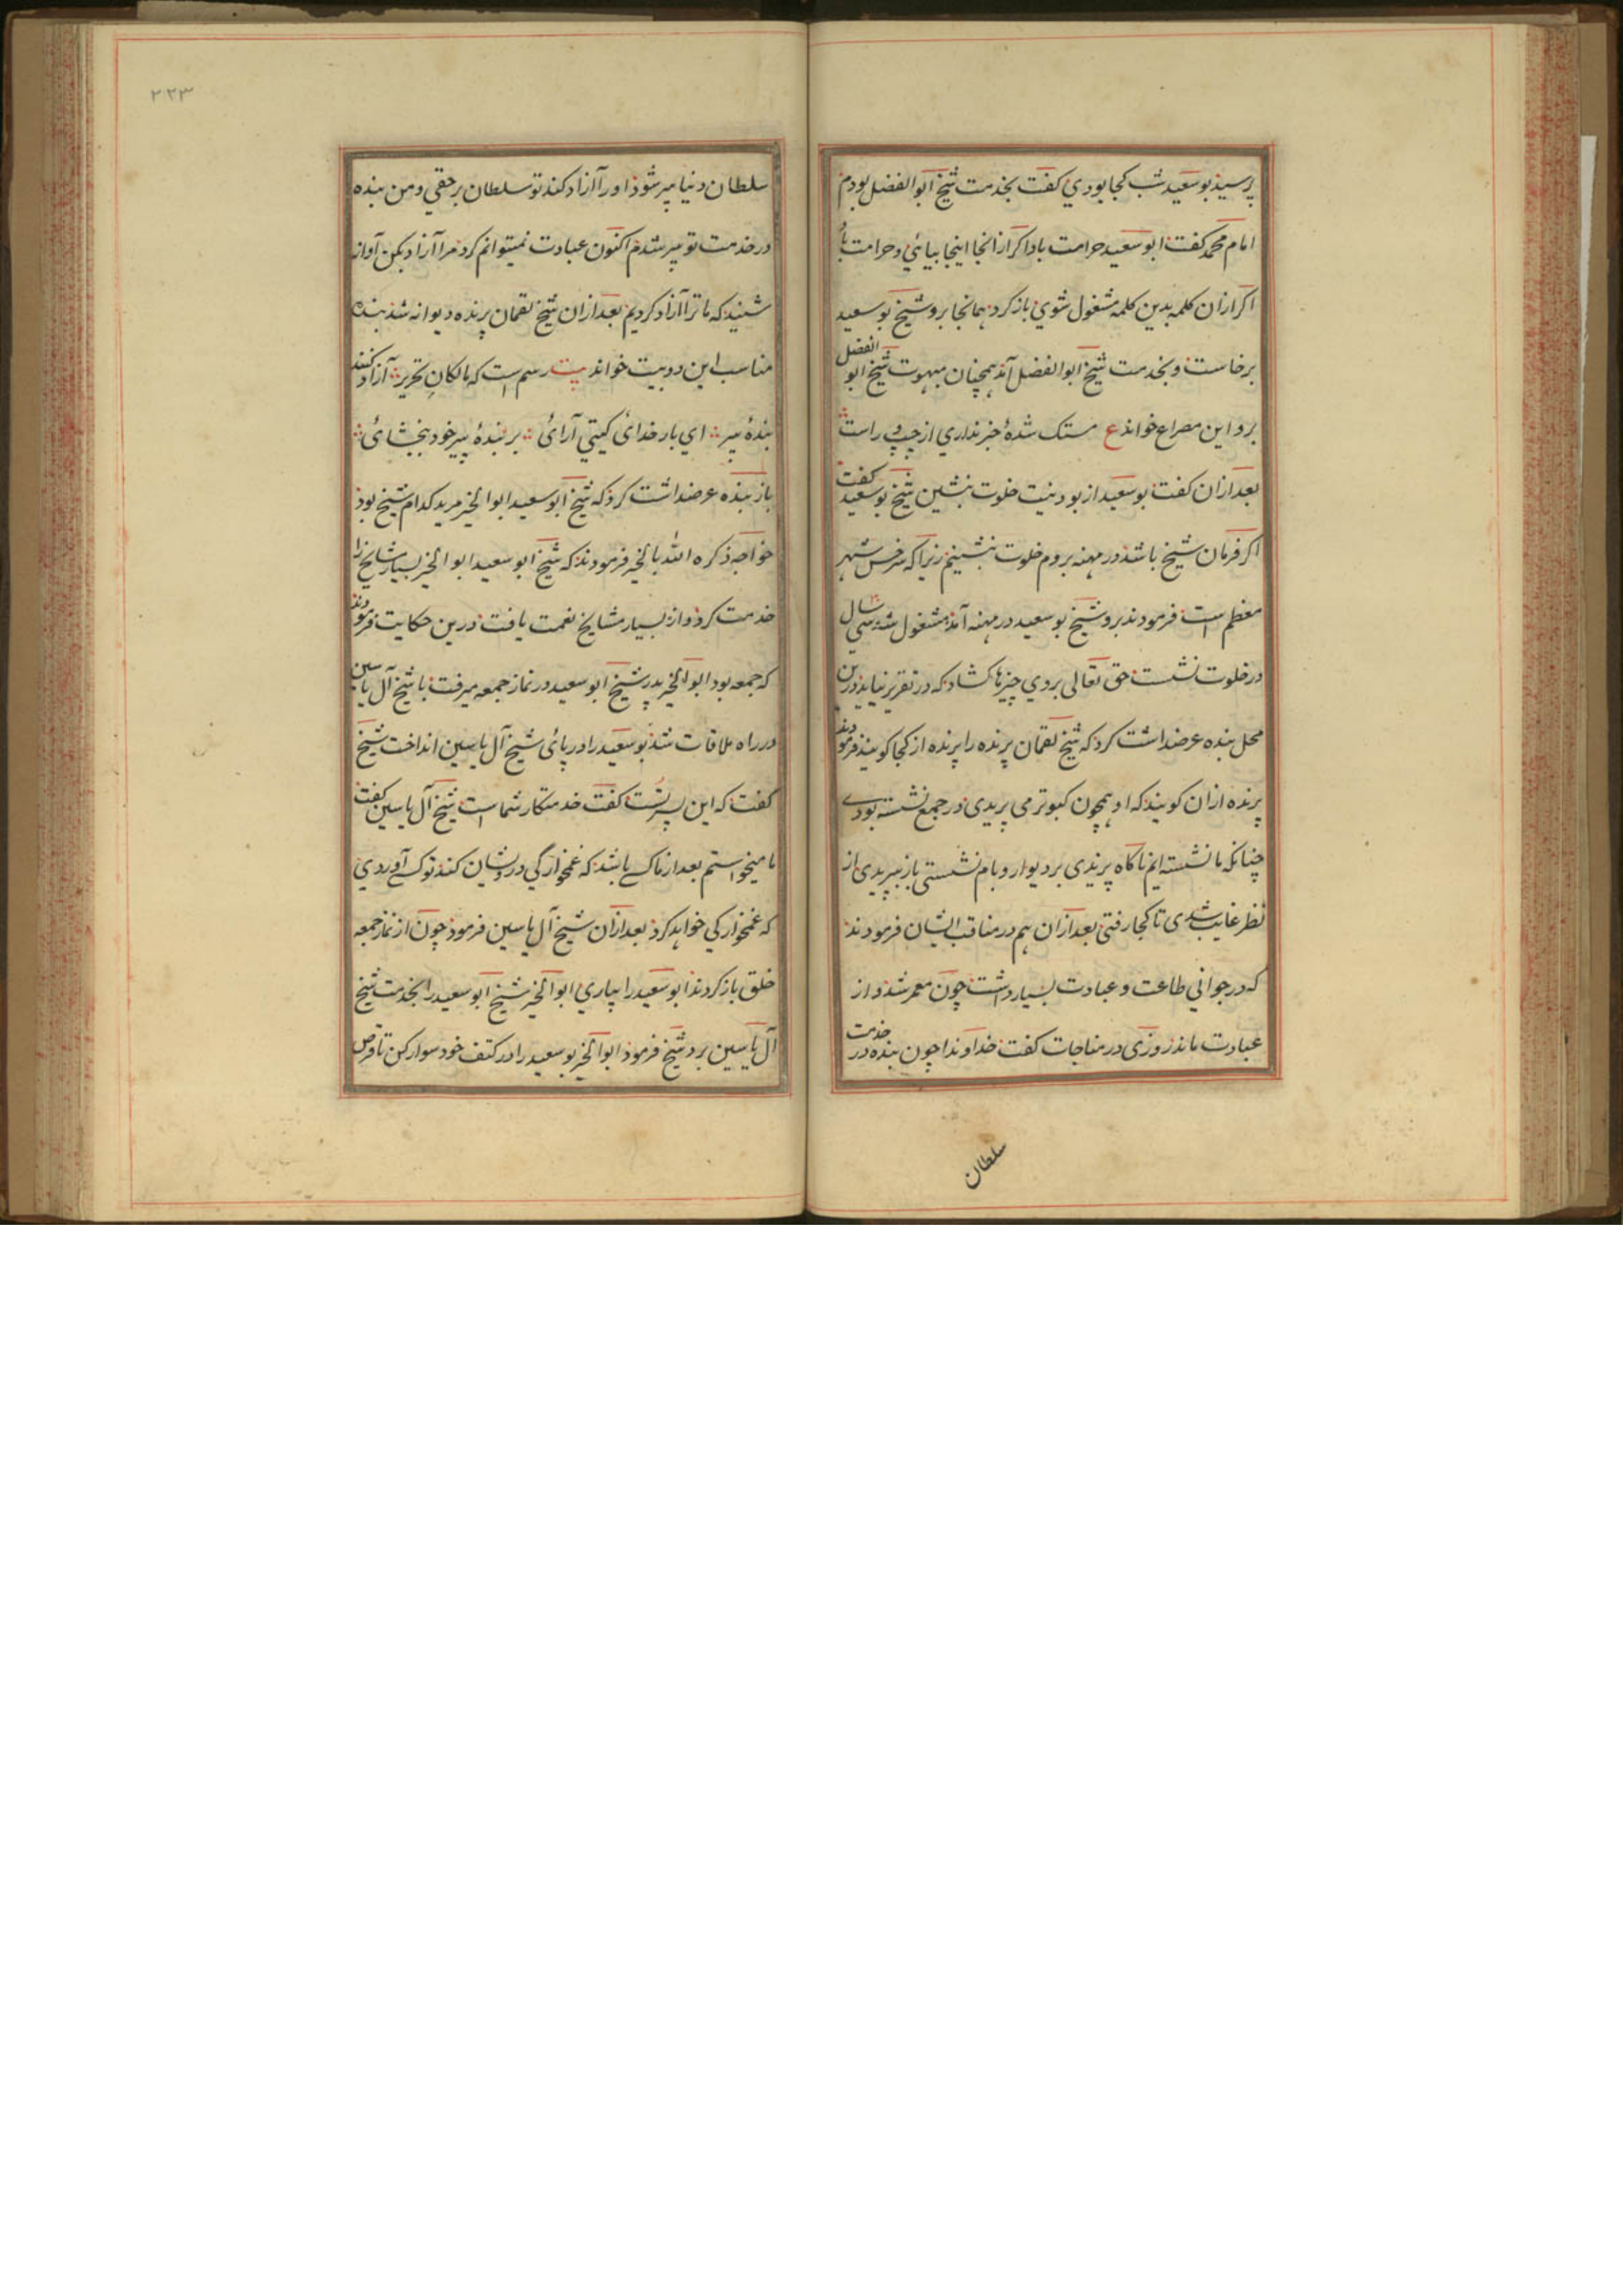 پرسید بوسعید شب کجا بودي کفت بخدمت شیخ ابوالفضل بودم
امام محمد کفت ابوسعید حرامت باد اکر از انجا اینجا بیایئ و حرامت باد
اکر ازان کلمه بدین کلمه مشغول شوي باز کرد همانجا برو شیخ بوسعید
برخاست و بخدمت شیخ ابوالفضل آمد همچنان مبهوت شیخ ابو الفضل
برو این مصراع خواند ع مستک شدۀ خبر نداري از چپ و راست
بعد ازان کفت بوسعید از بودنیت خلوت بنشین شیخ بوسعید کفت
اکر فرمان شیخ باشد در مهنه بروم خلوت بنشینم زیرا که سرخس شهر
معظم است فرمودند برو شیخ بوسعید در مهنه آمد مشغول شد سی سال
در خلوت نشست حق تعالی بروي چیزها کشاد که در تقریر نیاید درین
محل بنده عرضداشت کرد که شیخ لقمان پرنده را پرنده از کجا کویند فرمودند
پرنده ازان کویند که او همچون کبوتر می پریدی در جمع نشسته بودے
چنانکه ما نشسته ایم ناکاه پریدی بر دیوار و بام نشستی باز بپریدی از
نظر غایب شدی تا کجا رفتی بعد ازان هم در مناقب ایشان فرمودند
که در جواني طاعت و عبادت بسیار داشت چون معمر شد و از
عبادت ماند روزی در مناجات کفت خداوندا چون بنده در خدمت
سلطان
۲۲۳
سلطان دنیا پیر شود او را آزاد کند تو سلطان برحقي و من بنده
در خدمت تو پیر شدم اکنون عبادت نمیتوانم کرد مرا آزاد بکن آواز
شنید که ما ترا آزاد کردیم بعد ازان شیخ لقمان پرنده دیوانه شد بنده
مناسب این دو بیت خواند بیت رسم است که مالکانِ تحریر آزاد کنند
بندۀ پیر ای بار خدائ کیتي آرائ بر بندۀ پیر خود ببخشائ
باز بنده عرضداشت کرد که شیخ ابوسعید ابوالخیر مرید کدام شیخ بود
خواجه ذکره الله بالخیر فرمودند که شیخ ابوسعید ابوالخیر بسیار مشایخ را
خدمت کرد و از بسیار مشایخ نعمت یافت درین حکایت فرمودند
که جمعه بود ابوالخیر پدر شیخ ابوسعید در نماز جمعه میرفت با شیخ آل یاسین
در راه ملاقات شد بوسعید را در پائ شیخ آل یاسین انداخت شیخ
کفت که این پسر تست کفت خدمتکار شما است شیخ آل یاسین کفت
ما میخواستم بعد از ما کسے باشد که غمخوارکي درویشان کند تو کسے آوردي
که غمخوارکي خواهد کرد بعد ازان شیخ آل یاسین فرمود چون از نماز جمعه
خلق باز کردند ابوسعید را بیاري ابوالخیر شیخ ابوسعید را بخدمت شیخ
آل یاسین برد شیخ فرمود ابوالخیر بوسعید را در کتف خود سوار کن تا قرص